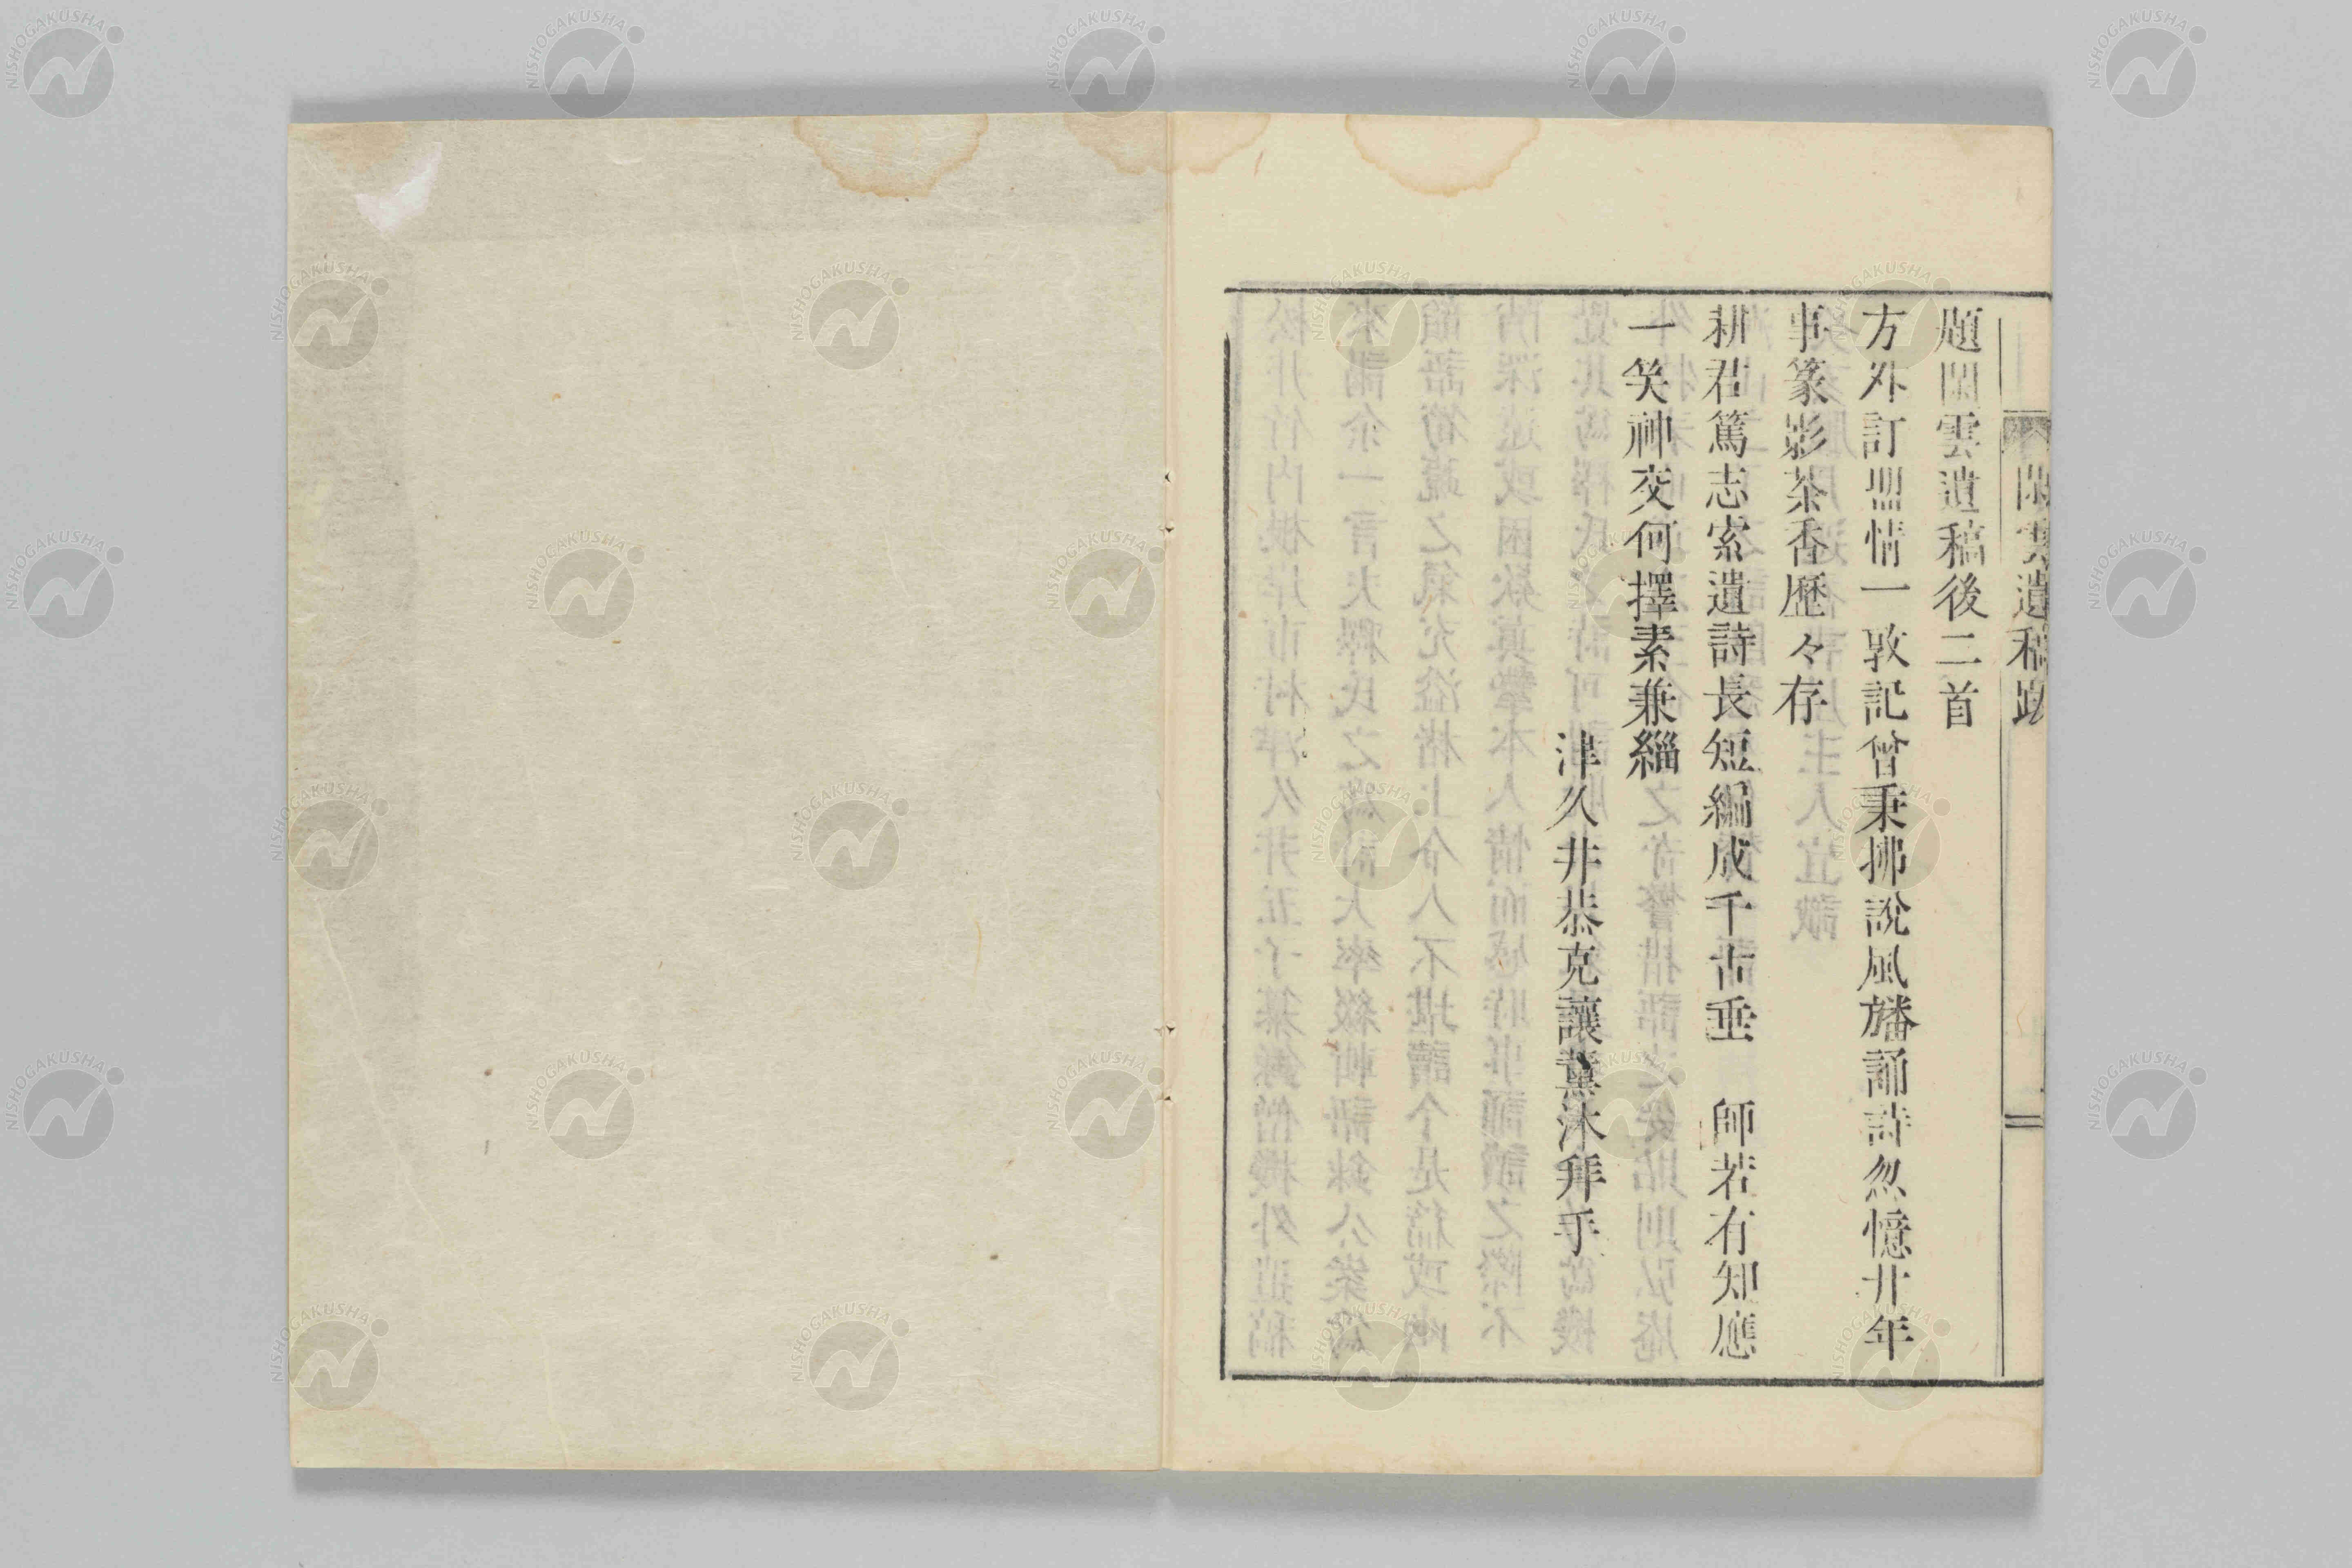 閒雲遺稿跋
題閒雲遺稿後二首
方外訂盟情一敦記曾秉拂說風旛誦詩忽憶廿年
事篆影茶香歷々存
耕君篤志索遺詩長短編成千古垂　師若有知應
一笑神交何擇素兼緇
津久井恭克讓薰沐拜手
NISHOGAKUSHA